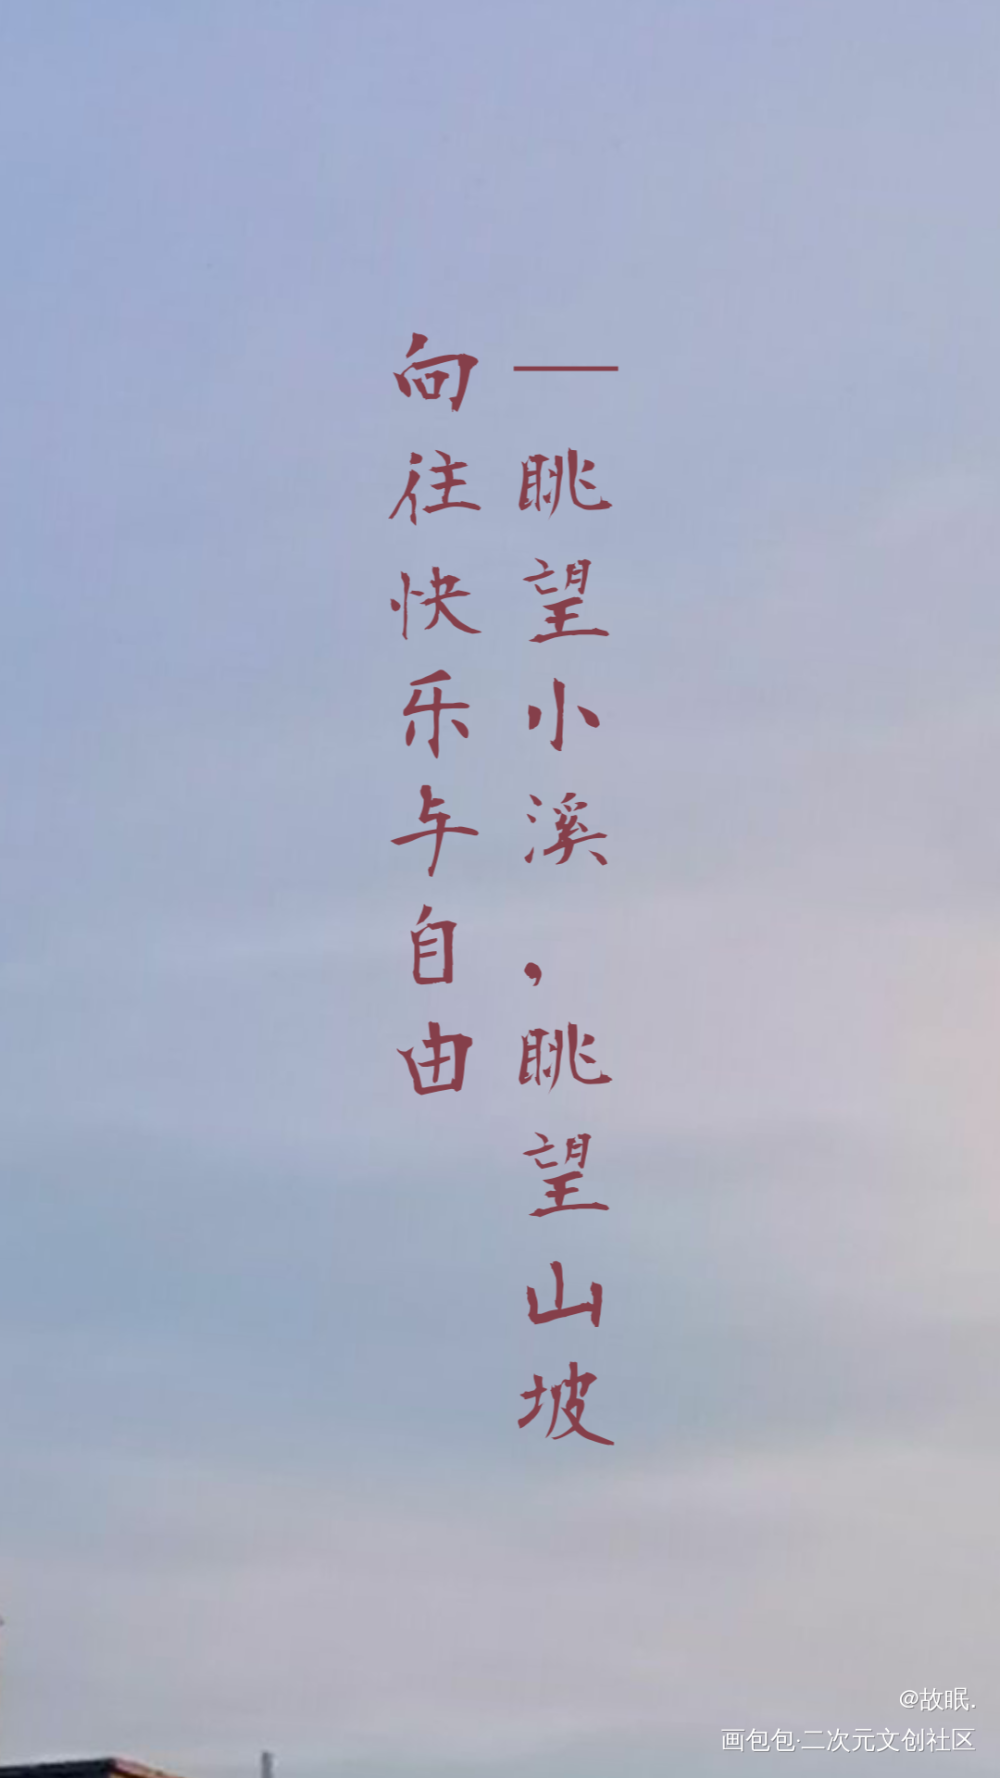 —眺望小溪，眺望山坡
向往快乐与自由
@故眠.
画包包·二次元文创社区